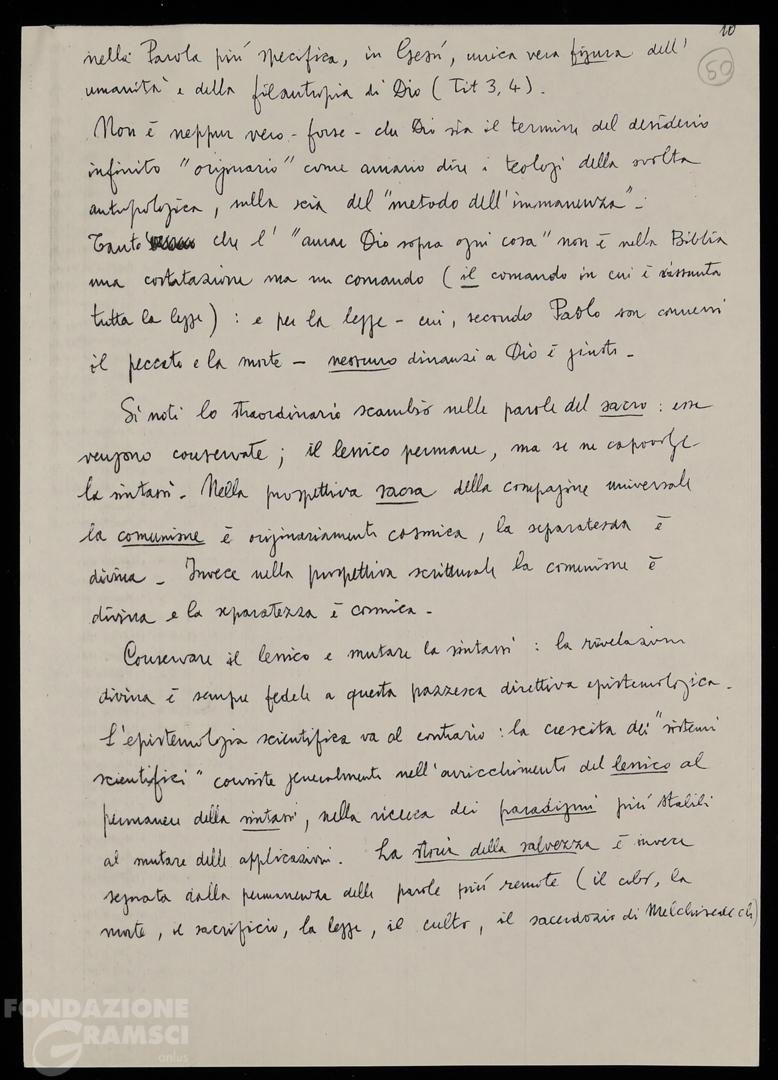 10
50
nella Parola più specifica, in Gesù, unica vera figura dell'
umanità e della filantropia di Dio (Tit 3,4).
Non è neppur vero - forse - che Dio sia il termine del desiderio
infinito "originario" come amano dire i teologi della svolta
antropologica, sulla scia del "metodo dell'immanenza".
Tanto che l'"amar Dio sopra ogni cosa" non è nella Bibbia
una costatazione ma un comando (il comando in cui è riassunta
tutta la legge) : e per la legge - cui, secondo Paolo son connessi
il peccato e la morte - nessuno dinanzi a Dio è giusto -
Si noti lo straordinario scambio nelle parole del sacro : esse
vengono conservate ; il lessico permane, ma se ne capovolge
la sintassi. Nella prospettiva sacra della compagine universale
la comunione è originariamente cosmica, la separatezza è
divina - Invece nella prospettiva scritturale la comunione è
divina e la separatezza è cosmica -
Conservare il lessico e mutare la sintassi : la rivelazione
divina è sempre fedele a questa pazzesca direttiva epistemologica.
L'epistemologia scientifica va al contrario : la crescita dei "sistemi
scientifici" consiste generalmente nell'arricchimento del lessico al
permanere della sintassi, nella ricerca dei paradigmi più stabili
al mutare delle applicazioni. La storia della salvezza è invece
segnata dalla permanenza delle parole più remote (il cibo, la
morte, il sacrificio, la legge, il culto, il sacerdozio di Melchisedech)
FONDAZIONE
GRAMSCI
onlus